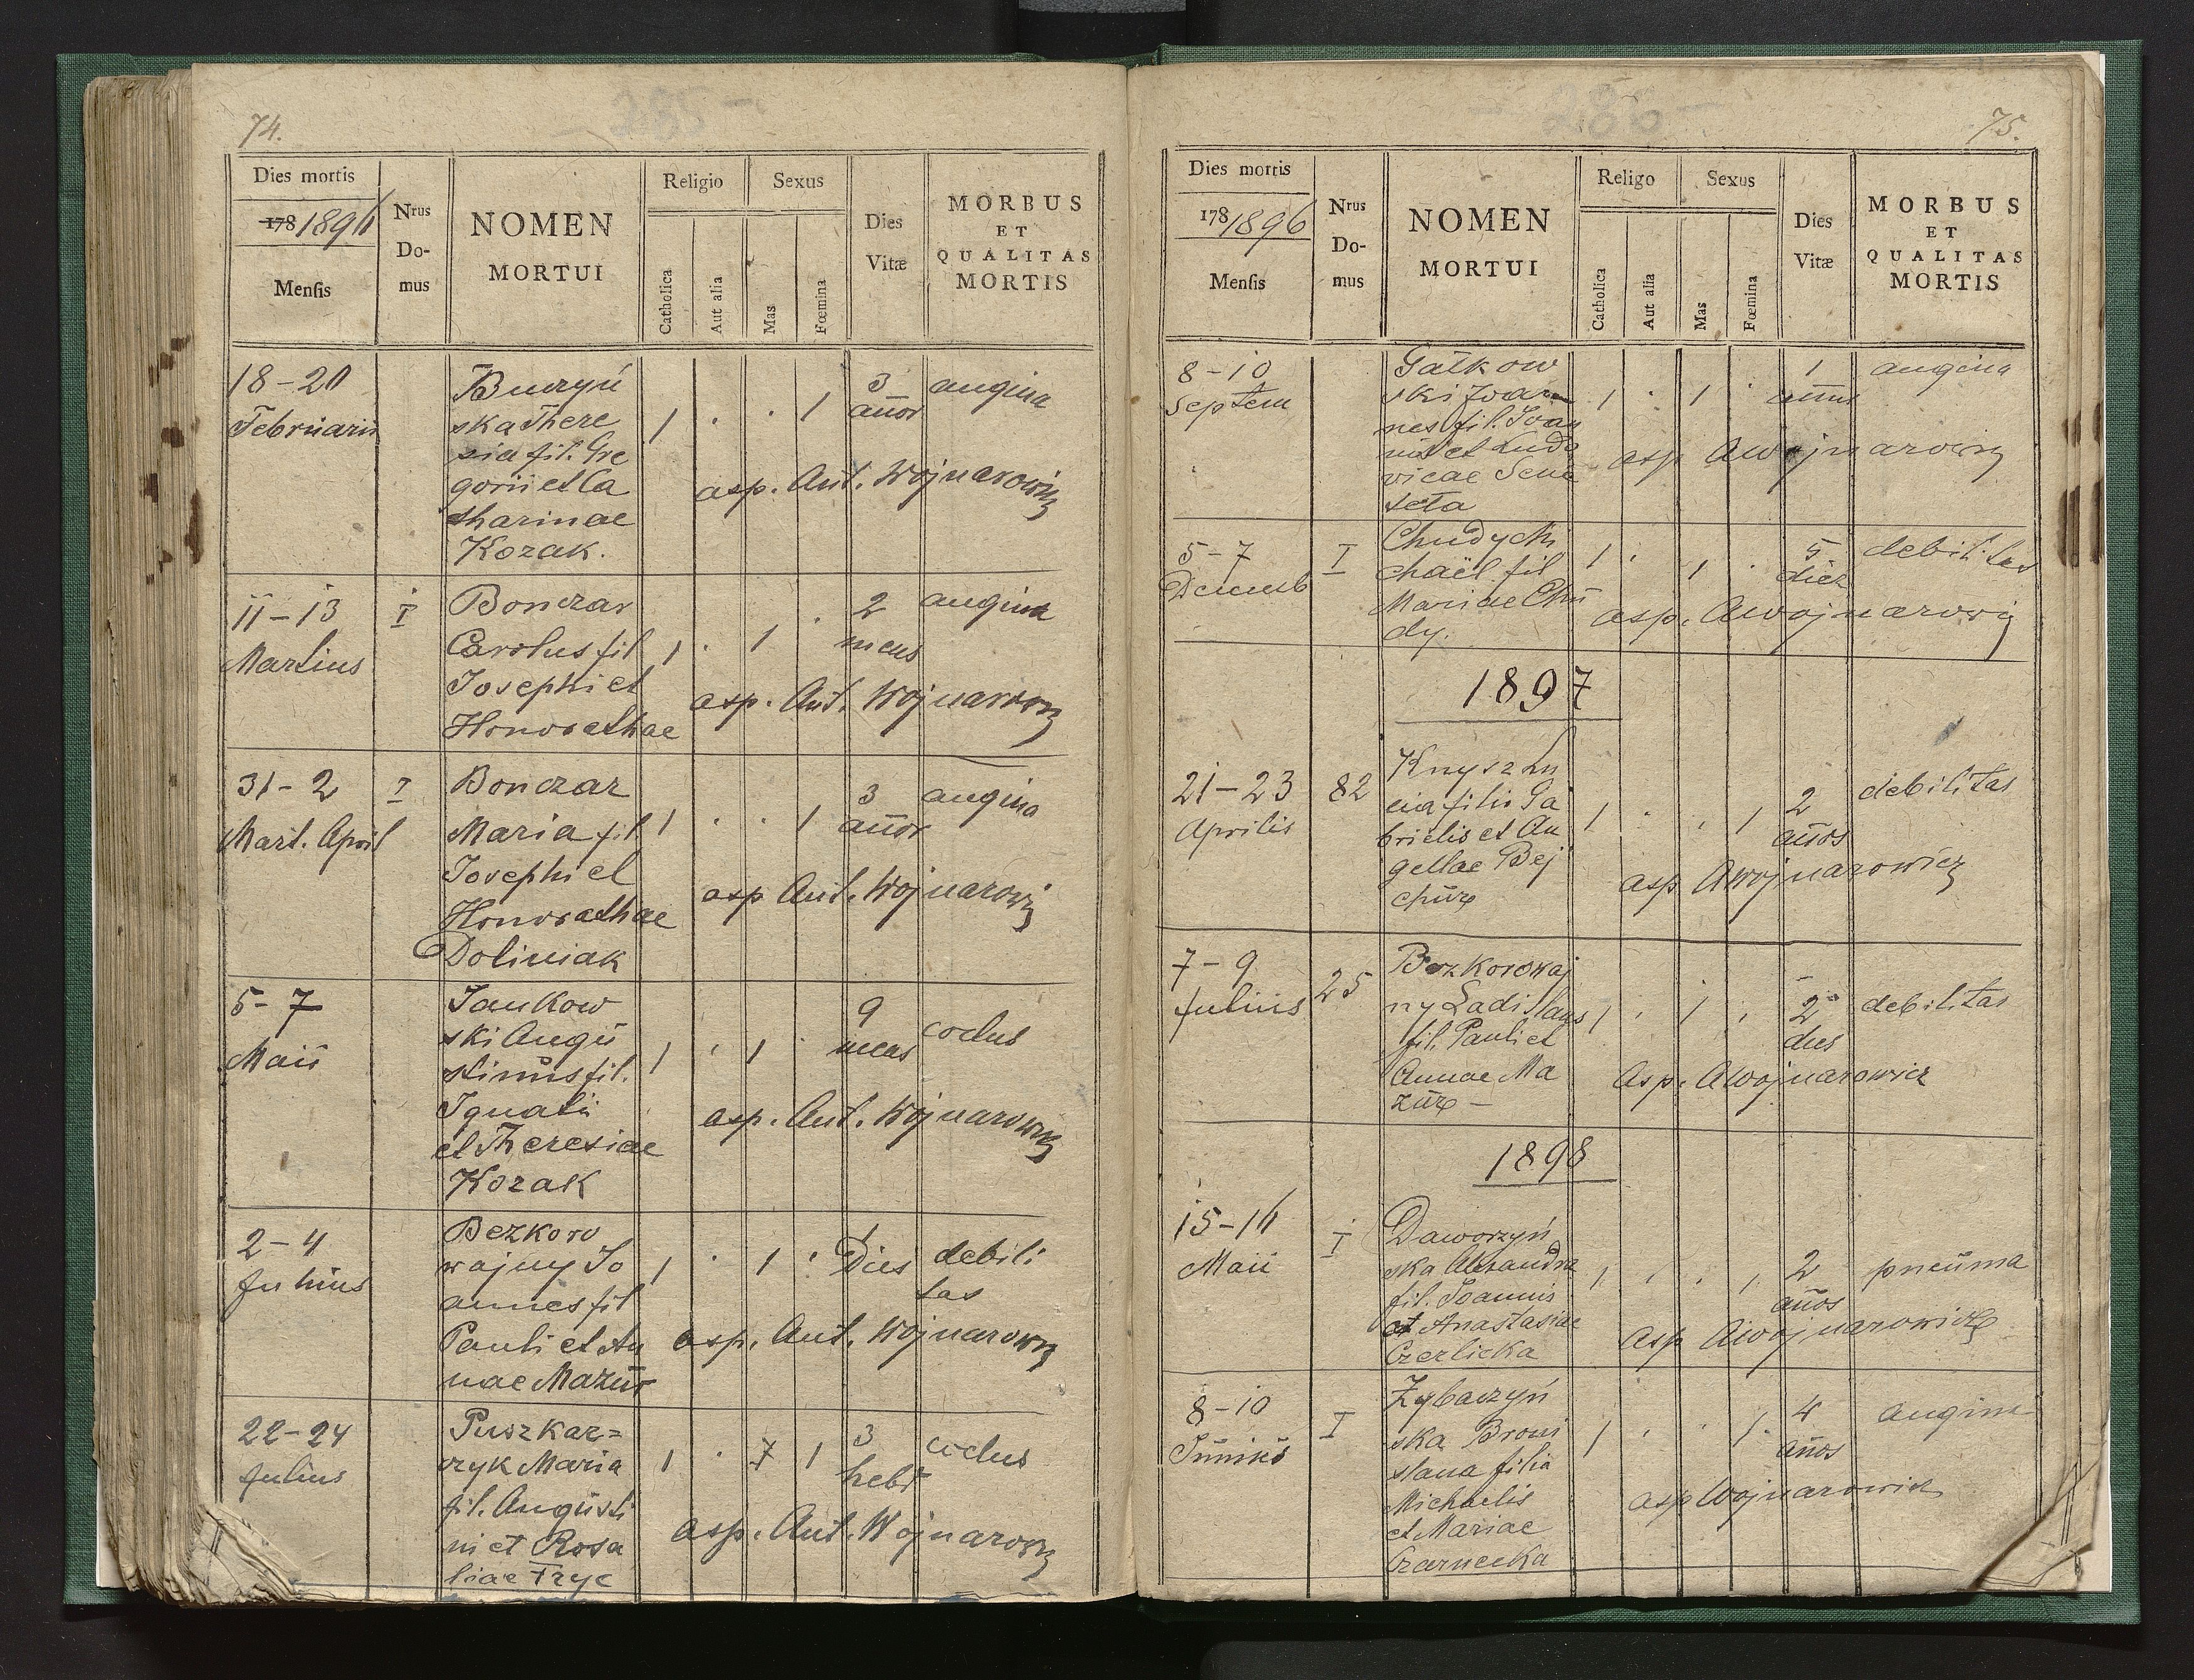 74.
Dies mortis
178 1896
Mensis
Nrus
Do-
mus
NOMEN
MORTUI
Religio
Catholica
Aut alia
Sexus
Mas
Fœmina
Dies
Vitæ
MORBUS
ET
QUALITAS
MORTIS
18-20
Februarii
Buczyń
ska There
sia fil. Gre
gorii et Ca
tharinae
Kozak.
1 . . 1
3
annor
angina
asp. Ant. Wojnarowicz
11-13
Martius
I
Bonczar
Carolus fil
Josephi et
Honorathae
1 . 1 .
2
mens
angina
asp. Ant. Wojnarowicz
31-2
Mart. April
I
Bonczar
Maria fil
Josephi et
Honorathae
Doliniak
1 . . 1
3
annor
angina
asp Ant. Wojnarowicz
5-7
Maii
Jankow
ski Augu
stinus fil.
Ignatii
et Theresiae
Kozak
1 . 1 .
9
mens
asp. Ant. Wojnarowicz
2-4
Julius
Bezkoro
wajny Jo
annes fil
Pauli et An
nae Mazur
1 . 1 .
1
Dies
debili
tas
asp. Ant. Wojnarowicz
22-24
Julius
Puszkar=
czyk Maria
fil. Augusti
ni et Rosa
liae Fryc
1 . 1
3
hebd
asp. Ant. Wojnarowicz
286
75.
Dies mortis
178 1896
Mensis
Nrus
Do-
mus
NOMEN
MORTUI
Religo
Catholica
Aut alia
Sexus
Mas
Fœmina
Dies
Vitæ
MORBUS
ET
QUALITAS
MORTIS
8-10
Septem
Gałkow
ski Joan
nes fil. Joan
nis et Ludo
vicae
1 . 1 .
1
annus
angina
asp AWojnarowicz
5-7
Decemb
I
Chudy Mi
chaël fil
Mariae Chu
dy.
1 . 1 .
5
dies
debilitas
asp. AWojnarowicz
1897
21-23
Aprilis
82
Knysz Lu
cia filia Ga
brielis et An
gellae Bej
1 . . 1
2
annos
debilitas
asp AWojnarowicz
7-9
Julius
25
Bezkorowaj
ny Ladislaus
fil. Pauli et
Annae Ma
zur -
1 . 1 .
2
dies
debilitas
asp. AWojnarowicz
1898
15-16
Maii
I
Daworzyń
ska Alexandra
fil. Joannis
et Anastasiae
Czerlicka
1 . . 1
2
annos
pneuma
asp AWojnarowicz
8-10
Junius
I
Zybaczyń
ska Broni
slava filia
Michaelis
et Mariae
Czarnecka
1 . . 1
4
annos
angina
asp Wojnarowicz